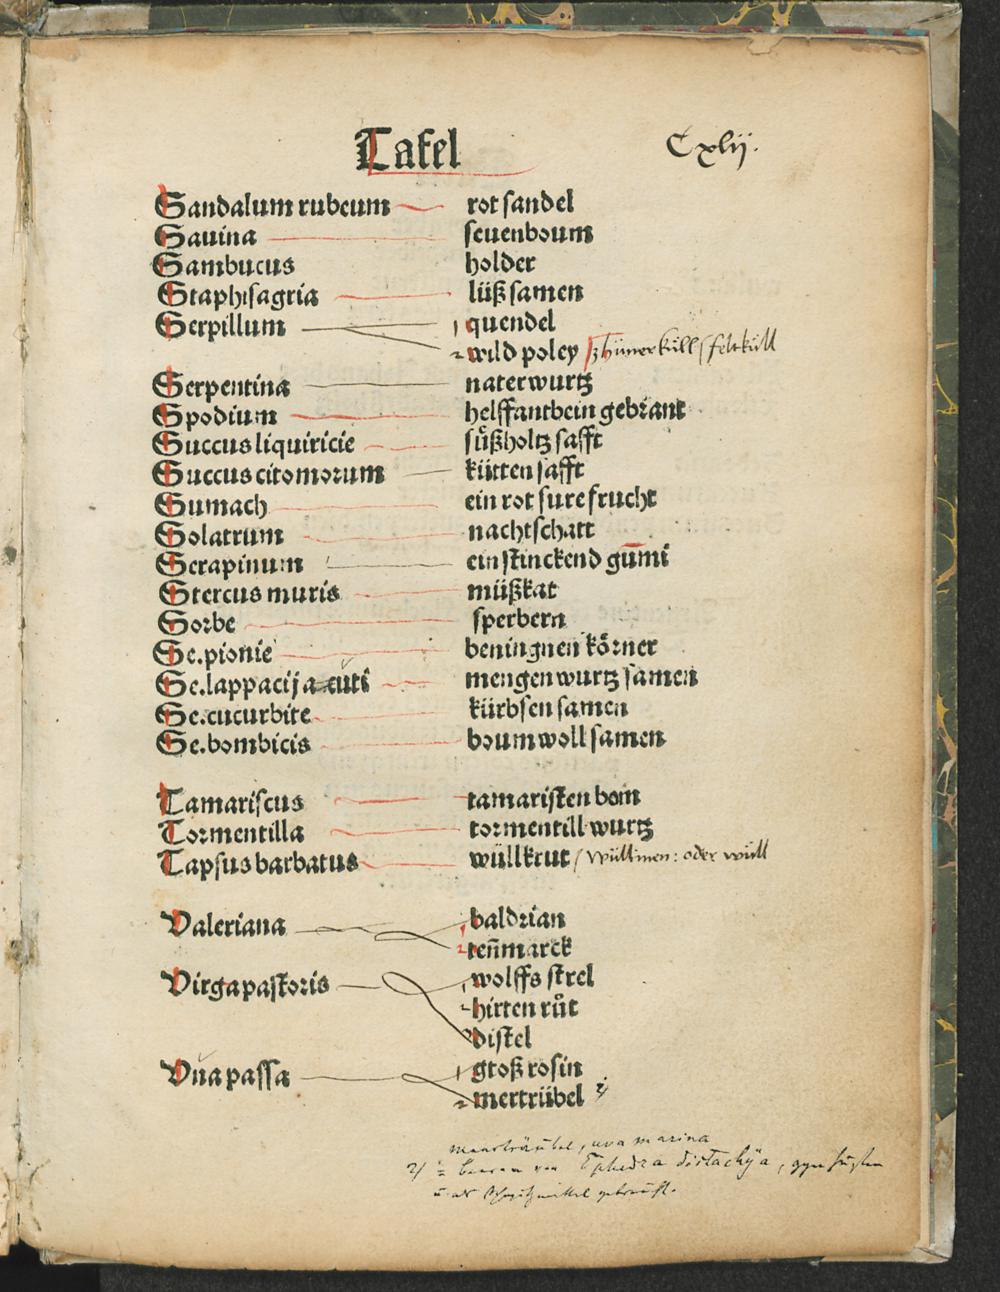 Tafel Cxlij.
Sandalum rubeum rot sandel
Sauina seuenboum
Sambucus holder
Staphisagria lüß samen
Serpillum 1 quendel
2 wild poley / hünerküll / feltküll
Serpentina naterwurtz
Spodium helffantbein gebrant
Succus liquiricie süßholtz safft
Succus citomorum kütten safft
Sumach ein rot sure frucht
Solatrum nachtschatt
Serapinum ein stinckend gūmi
Stercus muris müßkat
Sorbe sperbern
Se.pionie beningnen körner
Se.lappacij acuti mengenwurtz samen
Se.cucurbite kürbsen samen
Se.bombicis boumwoll samen
Tamariscus tamaristen bom
Tormentilla tormentill wurtz
Tapsus barbatus wüllkrut / wüllinen: oder wüll
Valeriana 1 baldrian
2 teñmarck
Virga pastoris 1 wolffs strel
2 hirten růt
3 distel
Vua passa 1 gtoß rosin
2 mertrübel 2)
meerträubel, uva marina
2) = beeren von Ephedra distachÿa, gegen